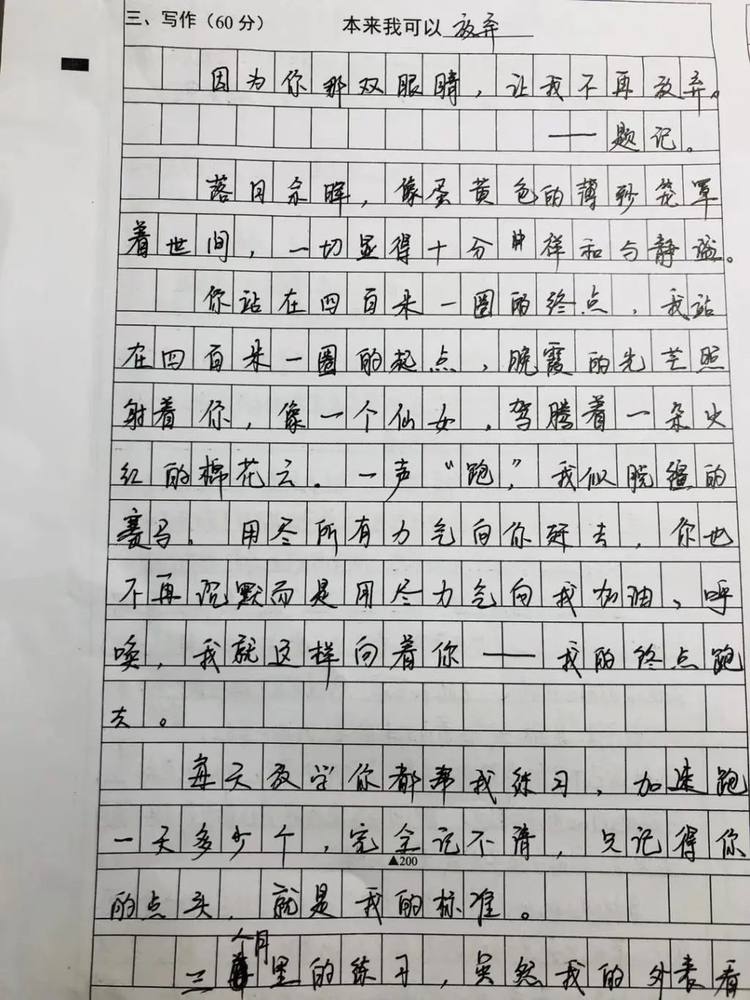 三、写作（60分） 本来我可以放弃
因为你那双眼睛，让我不再放弃。
——题记。
落日余晖，像蛋黄色的薄纱笼罩
着世间，一切显得十分祥和与静谧。
你站在四百米一圈的终点，我站
在四百米一圈的起点，晚霞的光芒照
射着你，像一个仙女，驾腾着一朵火
红的棉花云。一声“跑”，我似脱缰的
赛马。用尽所有力气向你赶去，你也
不再沉默而是用尽力气向我加油、呼
唤，我就这样向着你——我的终点跑
去。
每天放学你都帮我练习，加速跑
一天多少个，完全记不清，只记得你
▲200
的点头，就是我的标准。
三个月里的练习，虽然我的外表看